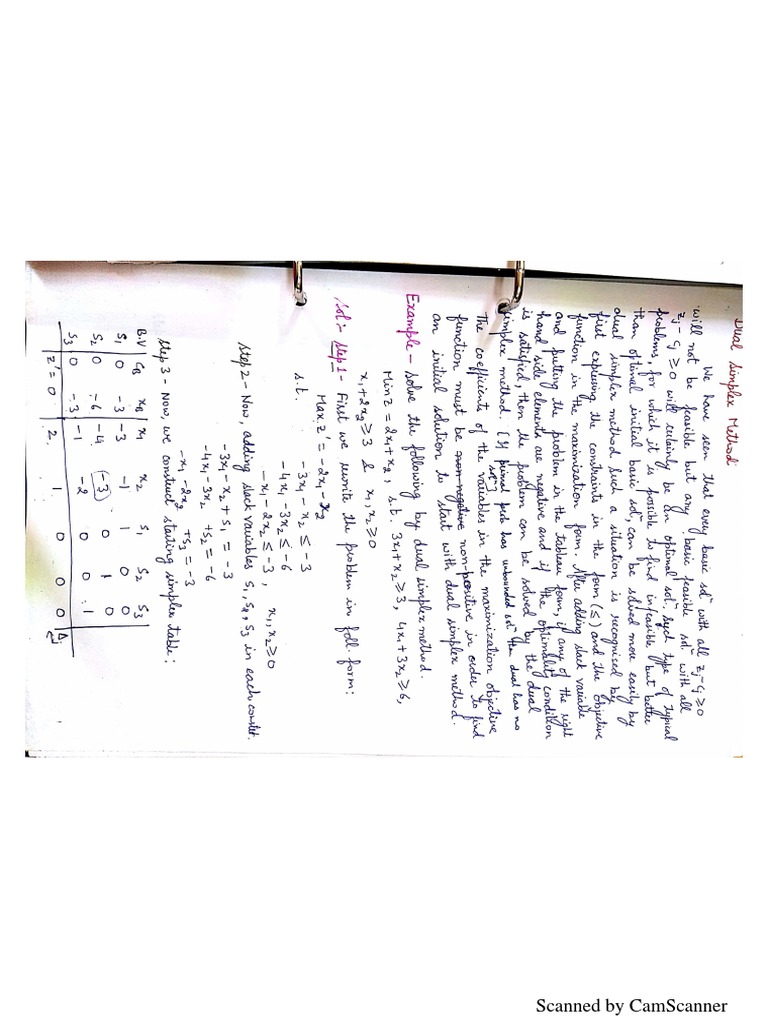 Dual Simplex Method
We have seen that every basic solⁿ with all zj - cj ≥ 0
will not be feasible but any basic feasible solⁿ with all
zj - cj ≥ 0 will certainly be an optimal solⁿ. Such type of typical
problems, for which it is possible to find infeasible but better
than optimal initial basic solⁿ, can be solved more easily by
dual simplex method such a situation is recognised by
first expressing the constraints in the form (≤) and the objective
function in the maximization form. After adding slack variable
and putting the problem in the tableau form, if any of the right
hand side elements are negative and if the optimality condition
is satisfied, then the problem can be solved by the dual
simplex method. (If primal prob has unbounded solⁿ then dual has no
solⁿ)
The coefficients of the variables in the maximization objective
function must be non-negative non-positive in order to find
an initial solution to start with dual simplex method.
Example - Solve the following by dual simplex method.
Min Z = 2x₁ + x₂, s.t. 3x₁ + x₂ ≥ 3, 4x₁ + 3x₂ ≥ 6,
x₁ + 2x₂ ≥ 3 & x₁, x₂ ≥ 0
Sol:- Step 1 - First we rewrite the problem in foll. form:
Max. Z' = -2x₁ - x₂
s.t. -3x₁ - x₂ ≤ -3
-4x₁ - 3x₂ ≤ -6
-x₁ - 2x₂ ≤ -3, x₁, x₂ ≥ 0
Step 2 - Now, adding slack variables s₁, s₂, s₃ in each constt.
-3x₁ - x₂ + s₁ = -3
-4x₁ - 3x₂ + s₂ = -6
-x₁ - 2x₂ + s₃ = -3
Step 3 - Now, we construct starting simplex table:
B.V CB XB x₁ x₂ s₁ s₂ s₃
s₁ 0 -3 -3 -1 1 0 0
s₂ 0 -6 -4 (-3) 0 1 0
s₃ 0 -3 -1 -2 0 0 1
Z' = 0 2 1 0 0 0 Δj
Scanned by CamScanner